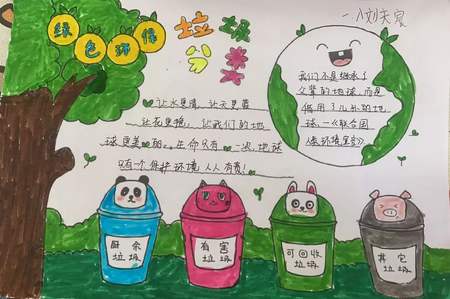 绿色环保
垃圾
分类
让水更清，让天更蓝
让花更艳，让我们的地
球更美丽。生命只有一次，地球
只有一个保护环境人人有责！
我们不是继承了
父辈的地球，而是
借用了儿孙的地
球。—《联合国
环境
厨余
垃圾
有害
垃圾
可回收
垃圾
其它
垃圾